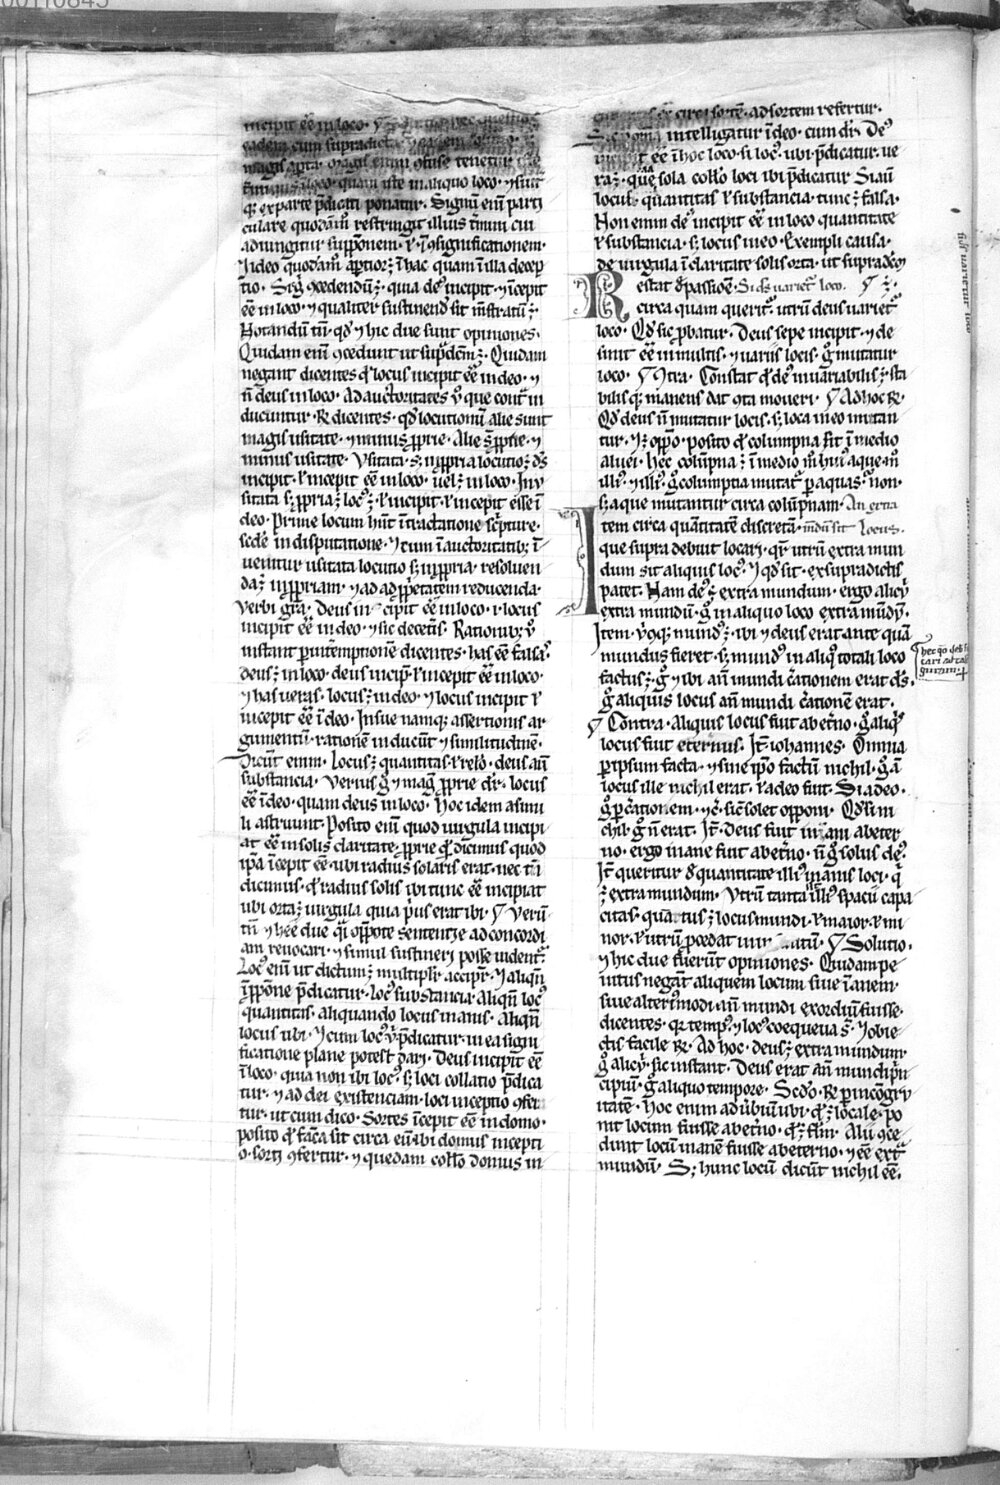 incipit eē in loco.
eadem cum supradicta
magis aꝑta. magis enim ꝯfuse tenetur iste
quam iste in aliquo loco. ⁊ sunt
qꝫ ex parte p̄dicati ponatur. Signū eni᷒ parti
culare quodāmō restringit illius t̄minū cui
adiungitur suppōnem. ł ꝯsignificationem.
Ideo quodāmō aꝑtior ÷ ī hac quam ī illa decep
tio. Sic ḡ ꝯcedendū ÷. quia de᷒ incipit ⁊ īcepit
eē in loco. ⁊ qualiter sustinend᷒ sit mr̄atū ÷.
Notandū tn̄. qd̓ ⁊ hic due sunt opiniones.
Quidam eni᷒ ꝯcedunt ut sup̄dcm̄ ÷. Quidam
negant dicentes ꝙ locus incipit eē in deo. ⁊
n̄ deus in loco. Ad auctoritates ṽ que cont̃ in
ducuntur. R̄ dicentes. qd̓ locutionū alie sunt
magis usitate. ⁊ minus ꝓprie. Alie s̄ ꝓprie. ⁊
minus usitate. Usitata. sꝫ inꝓpria locutio ÷. ds̄
incipit. ł incepit eē in loco. uel ÷ in loco. Inu
sitata sꝫ ꝓpria ÷. loc᷒ ÷. ł incipit. ł incepit esse ī
deo. Prime locum hn̄t ī tractatione sc̓pture.
sede in disputatione. ⁊ cum ī auctoritatibꝫ ī
uenitur usitata locutio sꝫ inꝓpria. resoluen
da ÷ inꝓpriam. ⁊ ad aꝓp̓etatem reducenda.
Verbi gr̄a. Deus in cipit eē in loco. ł locus
incipit eē in deo. ⁊ sic decet̃is. Rationibꝫ ṽ
instant ꝑ int̓emptionē dicentes. has eē falsas.
deus ÷ in loco. deus incip̄. ł incepit eē in loco.
⁊ has ueras. locus ÷ in deo. ⁊ locus incipit ł
incepit eē ī deo. In sue namqꝫ assertionis ar
gumentū. rationē inducūt ⁊ similitudinē.
Dicūt enim. Locus ÷ quantitas. ł relō. deus aūt
substancia. Verius ḡ ⁊ mag᷒ ꝓprie dr̄. locus
eē ī deo. quam deus in loco. Hoc idem a simi
li astruunt. Posito eni᷒ quod uirgula incipi
at eē in solis claritate. ꝓprie qd̓ dicimus quod
ip̄a īcepit eē. ubi radius solaris erat. nec tn̄
dicimus. ꝙ radius solis ibi tunc eē incipiat
ubi orta ÷ uirgula quia p̓us erat ibi. ¶ Verū
tn̄ ⁊ hee due q̄si oppōte sententie ad concordi
am reuocari. ⁊ simul sustineri posse uident᷑.
Loc᷒ eni᷒ ut dictum ÷ multiplr̄ accip̄r. ⁊ aliqn̄
ī ꝓpōne p̄dicatur. loc᷒ substancia. Aliqn̄ loc᷒
quantitas. aliquando locus inanis. Aliqn̄
locus ubi. ⁊ cum loc᷒ ṽ p̄dicatur. in ea signi
ficatione plane potest dari. Deus incipit eē
ī loco. quia non ibi loc᷒. sꝫ loci collatio p̄dica
tur. ⁊ ad dei existenciam. loci inceptio ꝯfer
tur. ut cum dico. Sortes īcepit eē in domo.
posito ꝙ fac̄a sit circa eū. ibi domus incepti
o. sorti ꝯfertur. ⁊ quedam collō domus in
circa sortē. ad sortem refertur.
intelligatur ī deo. cum dr̄. De᷒
incipit eē ī hoc loco. si loc᷒. ubi p̄dicatur. ue
ra ÷. quia sola collō loci ibi p̄dicatur. Si aūt
locus. quantitas ł substancia. tunc ÷ falsa.
Non enim de᷒ incipit eē in loco quantitate
ł substancia. sꝫ locus in eo. Exempli causa.
de uirgula ī claritate solis orta. ut supradcm̄
Restat de passiōe. Si ds̄ uariet᷑ loco. ¶ ÷.
circa quam querit᷑. utrū deus uariet᷑
loco. Qd̓ sic ꝓbatur. Deus sepe incipit. ⁊ de
sinit eē in multis. ⁊ uariis locis. ḡ mutatur
loco. ¶ Cōtra. Constat ꝙ de᷒ inuariabilis ÷. sta
bilis qꝫ manens dat cūcta moueri. ¶ Ad hoc R̄.
Qd̓ deus n̄ mutatur locis. sꝫ loca in eo mutan
tur. posito ꝙ columpna sit ī medio
aluei. hec colūpna ÷ ī medio
ḡ columpna mutat᷑ ꝑ aquas. non.
sꝫ aque mutantur circa colūpnam. An extra
Item circa quātitatē discretā. mūdū sit Locus.
que supra debuit locari. qr̄. utrū extra mun
dum sit aliquis loc᷒. ⁊ qd̓ sit. ex supradictis
patet. Nam de᷒ ÷ extra mundum. ergo alicubi
extra mundū. ḡ in aliquo loco extra mūdū.
Item. mund᷒ ÷. ibi ⁊ deus erat ante quā
mundus fieret. sꝫ mund᷒ in aliq᷒ totali loco
factus ÷. ḡ ⁊ ibi an̄ mundi c̓ationem erat ds̄.
ḡ aliquis locus an̄ mundi c̓ationē erat.
¶ Contra. aliquis locus fuit ab et̓no. ḡ aliqs̓
locus fuit eternus. It̄. iohannes. Omnia
ꝑ ipsum facta. ⁊ sine ip̄o factū nichil. ḡ a
locus ille nichil erat. ł a deo fuit. Si a deo.
ḡ ꝑ c̓ationem. ⁊c̄. sic̄ solet opponi. Qd̓ si ni
chil. ḡ n̄ erat. It̄. Deus fuit in ani ab eter
no. ergo inane fuit ab et̓no. n̄ ḡ solus de᷒.
It̄ queritur de quantitate illi᷒ inanis loci. q̓
÷ extra mundum. Vtrū tanta illi᷒ spacii capa
citas. quātus ÷ locus mundi. ł maior. ł mi
nor. ł utrū ꝓcedat in ¶ Solutio.
⁊ hic due fuerūt opiniones. Quidam pe
nitus negāt aliquem locum siue īanem.
siue alterī modi. an̄ mundi exordiū fuisse.
dicentes. qꝫ temp᷒. ⁊ loc᷒ coequeua s̄. ⁊ obie
ctis facile R̄. Ad hoc. deus ÷ extra mundum.
ḡ alicubi. sic instant. Deus erat an̄ mundi p̓n
cipiū. ḡ aliquo tempore. Sed᷒. R̄ ꝑ incōgru
itatē. Hoc enim aduerbiū ubi. ꝙ ÷ locale. po
nit locum fuisse ab et̓no. ꝙ ÷ fl̄m. Alii ꝯce
dunt locū inanē fuisse ab eterno. ⁊ eē ext̓
mundū. Sꝫ hunc locū dicūt nichil eē.
hec qō deb
cari